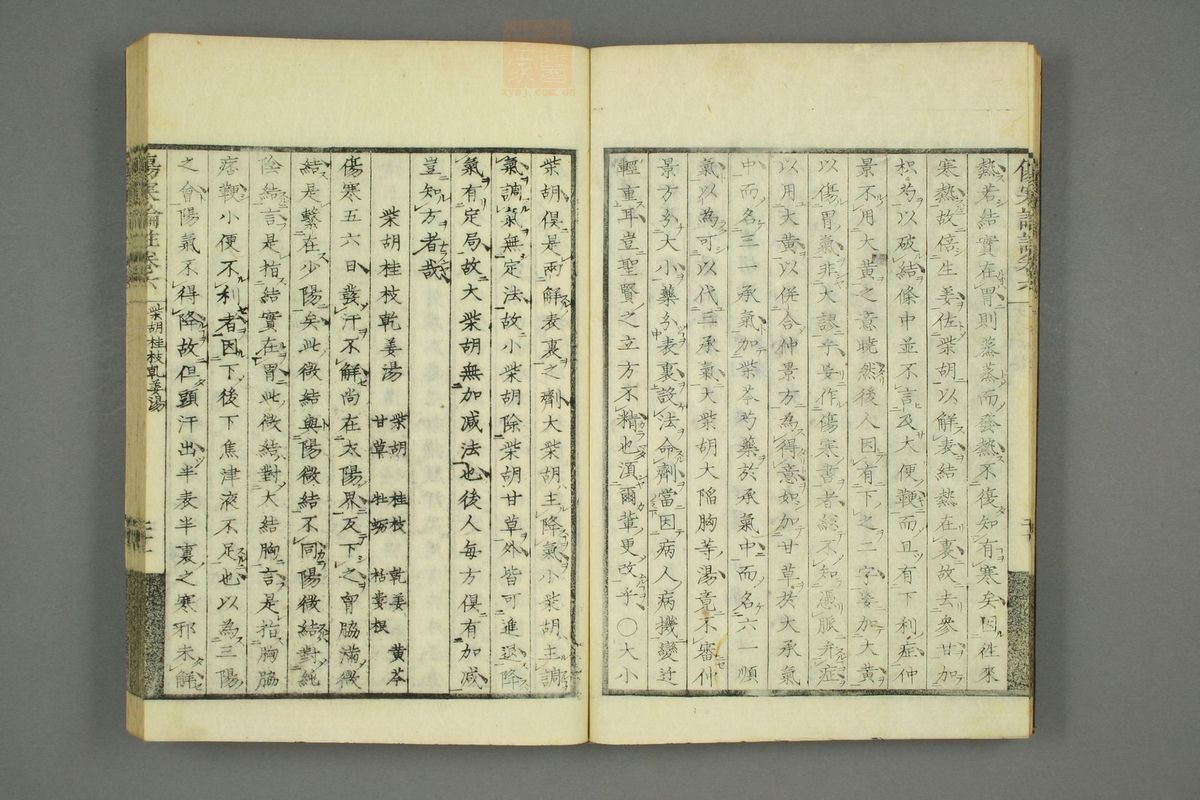 熱若結實在胃則蒸蒸而發熱不傷知有寒矣因往來
寒熱故倍生姜佐柴胡以解表結熱在裏故去參甘加
枳芍以破結條中並不言及大便鞕而且有下利症仲
景不用大黃之意曉然後人因有下之二字妄加大黃
以傷胃氣非大謬乎妄作傷寒書者總不知憑脈弁症
以用大黃以併合仲景方為得意如加甘草於大承氣
中而名三一承氣加柴芩芍藥於承氣中而名六一順
氣以為可以代三承氣大柴胡大陷胸等湯竟不審仲
景方分大小藥分表裏設法命劑當因病人病機變迁
輕重耳豈聖賢之立方不精也湏爾輩更改乎〇大小
柴胡俱是兩解表裏之劑大柴胡主降氣小柴胡主調
氣調氣無定法故小柴胡除柴胡甘草外皆可進退降
氣有定局故大柴胡無加減法也後人每方俱有加減
豈知方者哉
柴胡桂枝乾姜湯 柴胡 桂枝 乾姜 黄芩
甘草 牡蛎 栝蔞根
傷寒五六日發汗不解尚在太陽界反下之胷脇滿微
結是繋在少陽矣此微結與陽微結不同陽微結對純
陰結言是指結實在胃此微結對大結胸言是指胸脇
痞鞕小便不利者因下後下焦津液不足也以為三陽
之會陽氣不得降故但頭汗出半表半裏之寒邪未解
傷寒論註卷六
柴胡桂枝乾姜湯